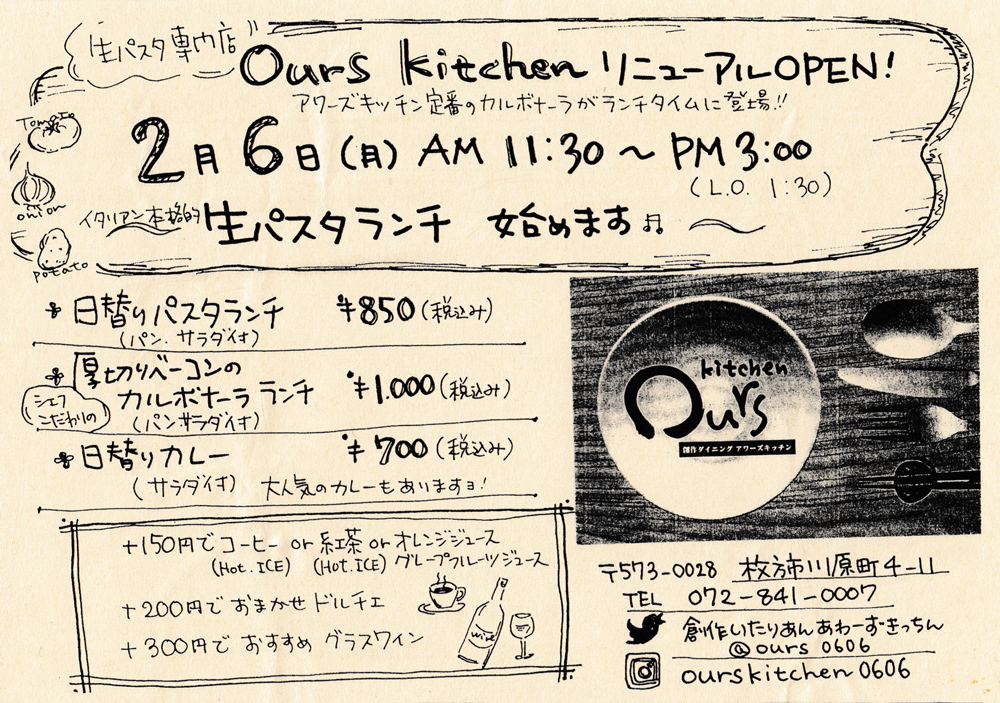 生パスタ専門店
Ours kitchen リニューアルOPEN!
アワーズキッチン定番のカルボナーラがランチタイムに登場!!
2月6日(月) AM 11:30 ~ PM 3:00
(L.O. 1:30)
イタリアン本格的生パスタランチ 始めます♫
Tomato
onion
potato
日替りパスタランチ ¥850(税込み)
(パン.サラダ付)
厚切りベーコンの
シェフこだわりの
カルボナーラランチ ¥1.000(税込み)
(パンサラダ付)
日替りカレー ¥700(税込み)
(サラダ付) 大人気のカレーもありますヨ!
+150円でコーヒー or 紅茶 or オレンジジュース
(Hot.ICE) (Hot.ICE) グレープフルーツジュース
+200円で おまかせ ドルチェ
+300円で おすすめ グラスワイン
wine
kitchen
Ours
創作ダイニング アワーズキッチン
〒573-0028 枚方市川原町4-11
TEL 072-841-0007
創作いたりあんあわーずきっちん
@ours 0606
ourskitchen0606